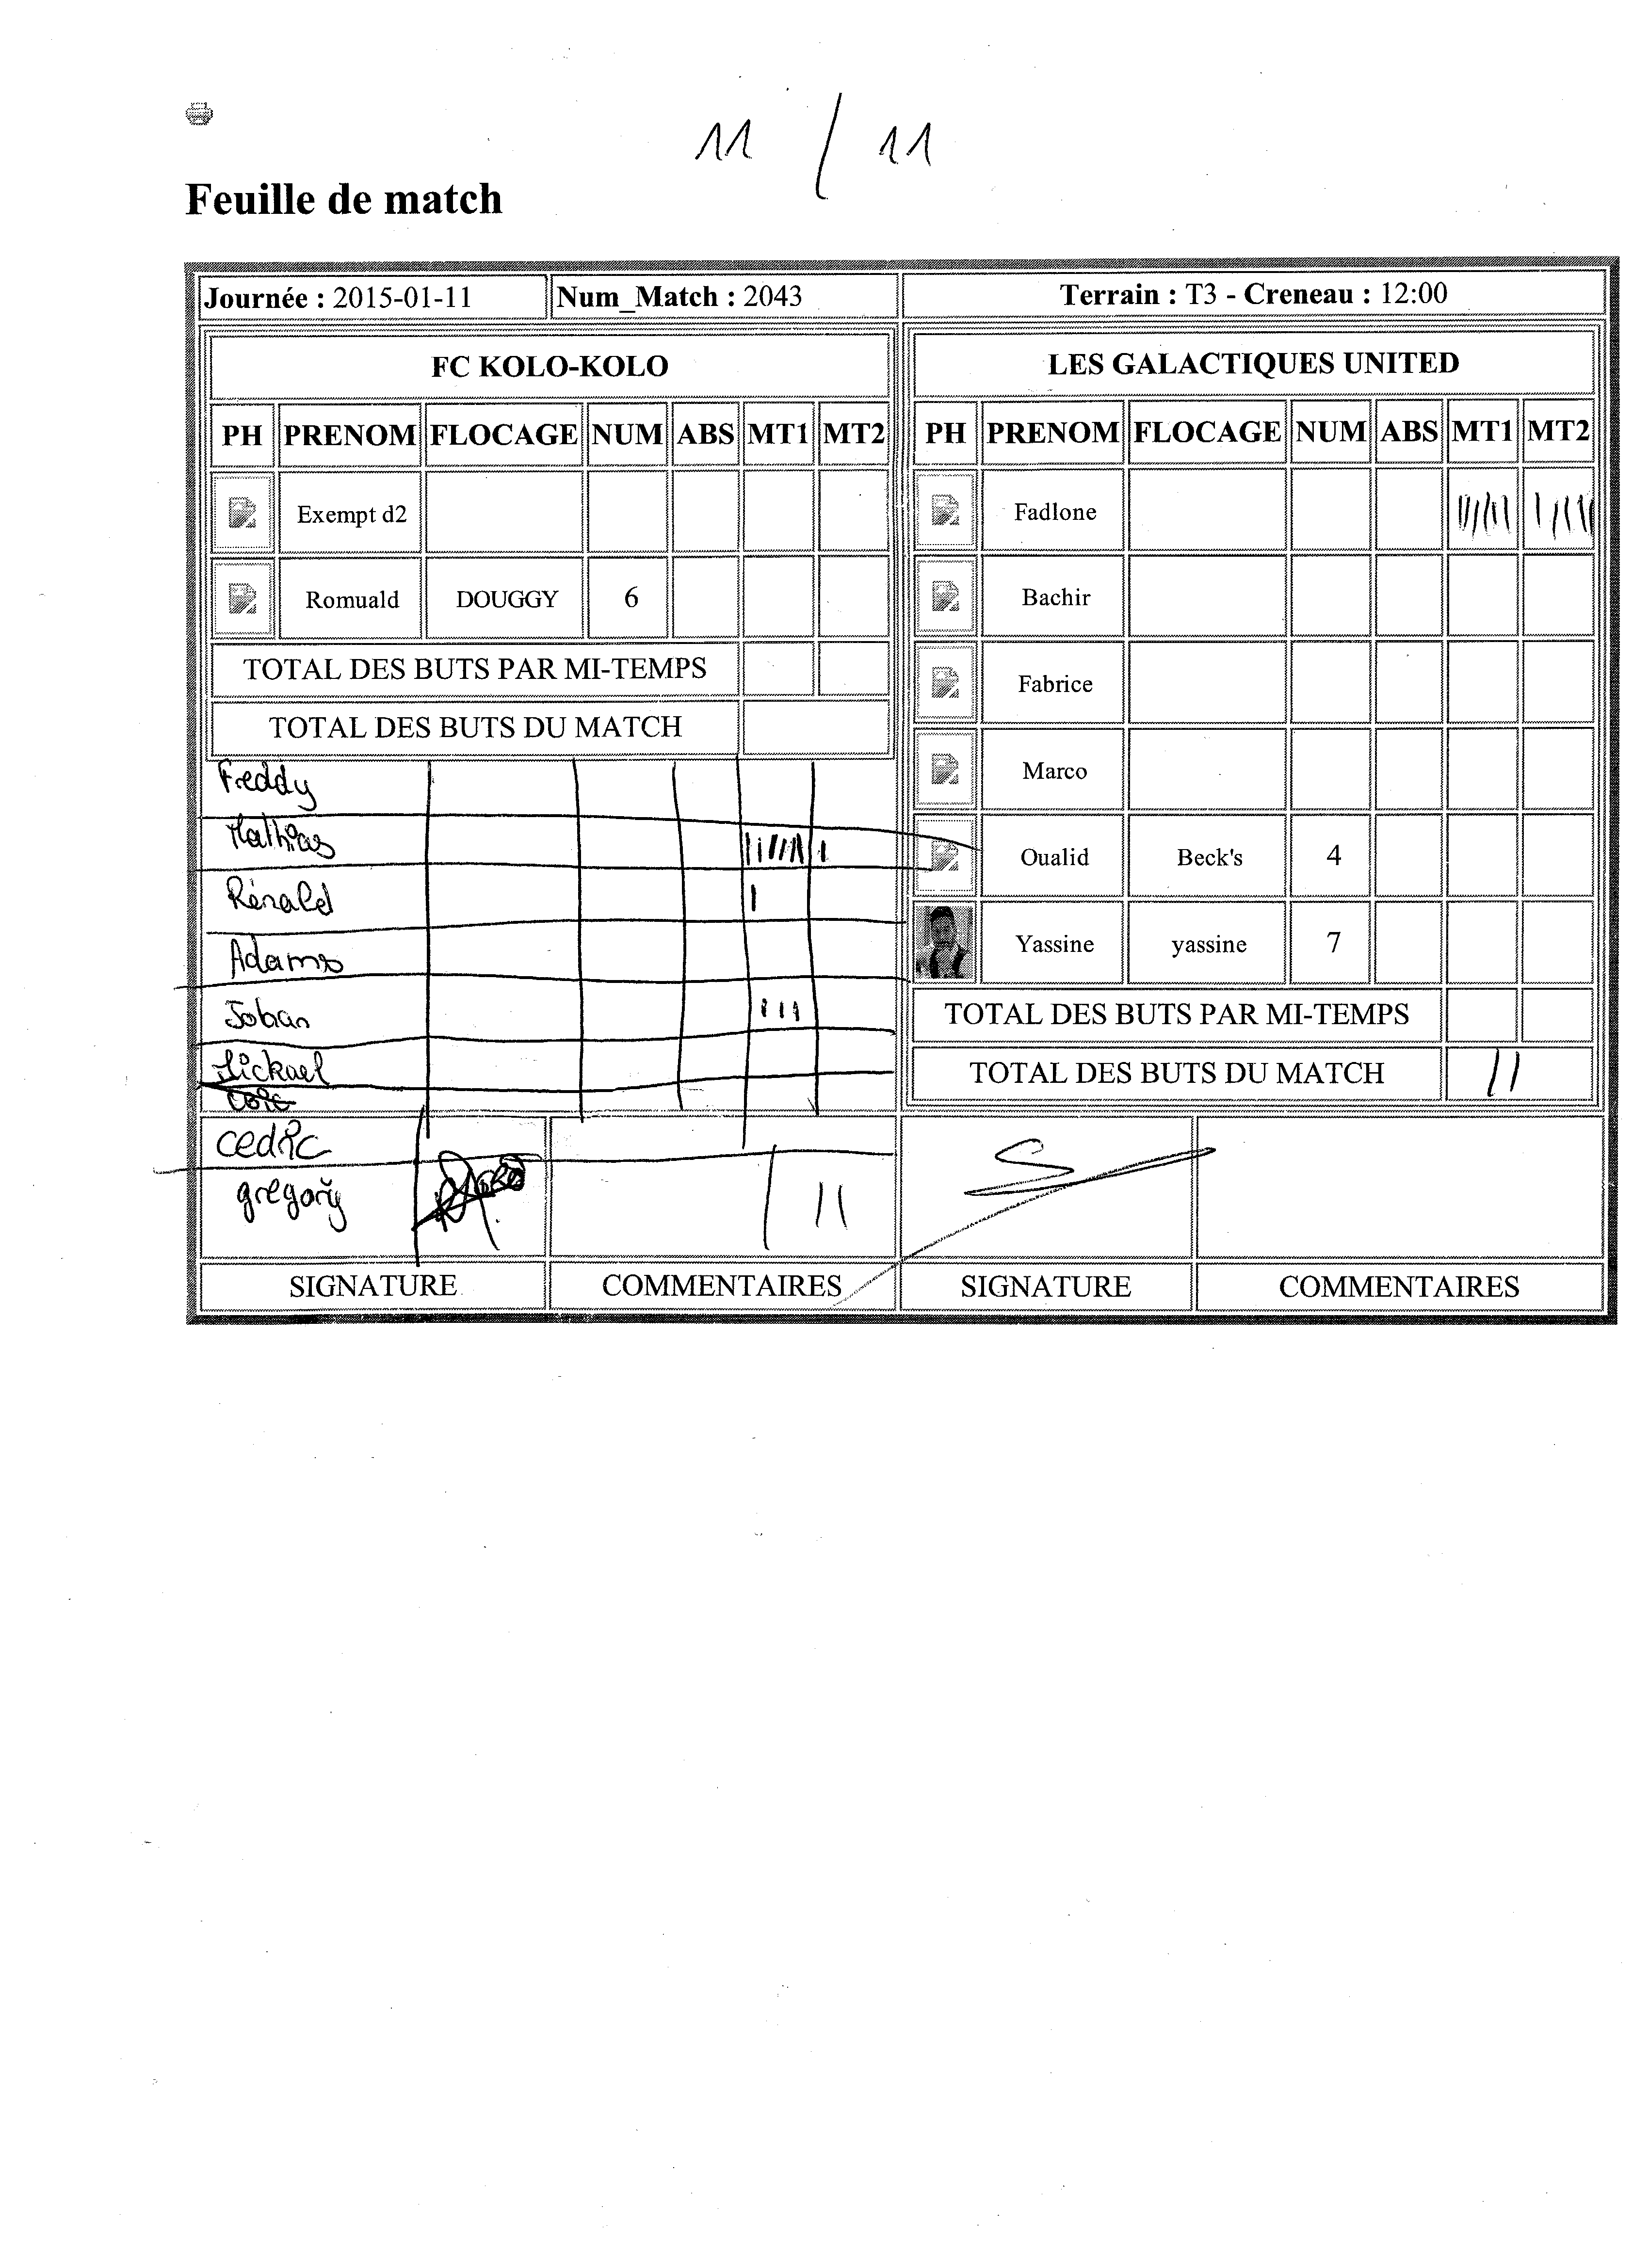 11 / 11
Feuille de match
Journée : 2015-01-11 Num_Match : 2043 Terrain : T3 - Creneau : 12:00
FC KOLO-KOLO
PH PRENOM FLOCAGE NUM ABS MT1 MT2
Exempt d2
Romuald DOUGGY 6
TOTAL DES BUTS PAR MI-TEMPS
TOTAL DES BUTS DU MATCH
Freddy
Mathias
Rénald
Adams
Johan
Mickael
cedric
gregory
11
SIGNATURE COMMENTAIRES
LES GALACTIQUES UNITED
PH PRENOM FLOCAGE NUM ABS MT1 MT2
Fadlone
Bachir
Fabrice
Marco
Oualid Beck's 4
Yassine yassine 7
TOTAL DES BUTS PAR MI-TEMPS
TOTAL DES BUTS DU MATCH 11
SIGNATURE COMMENTAIRES